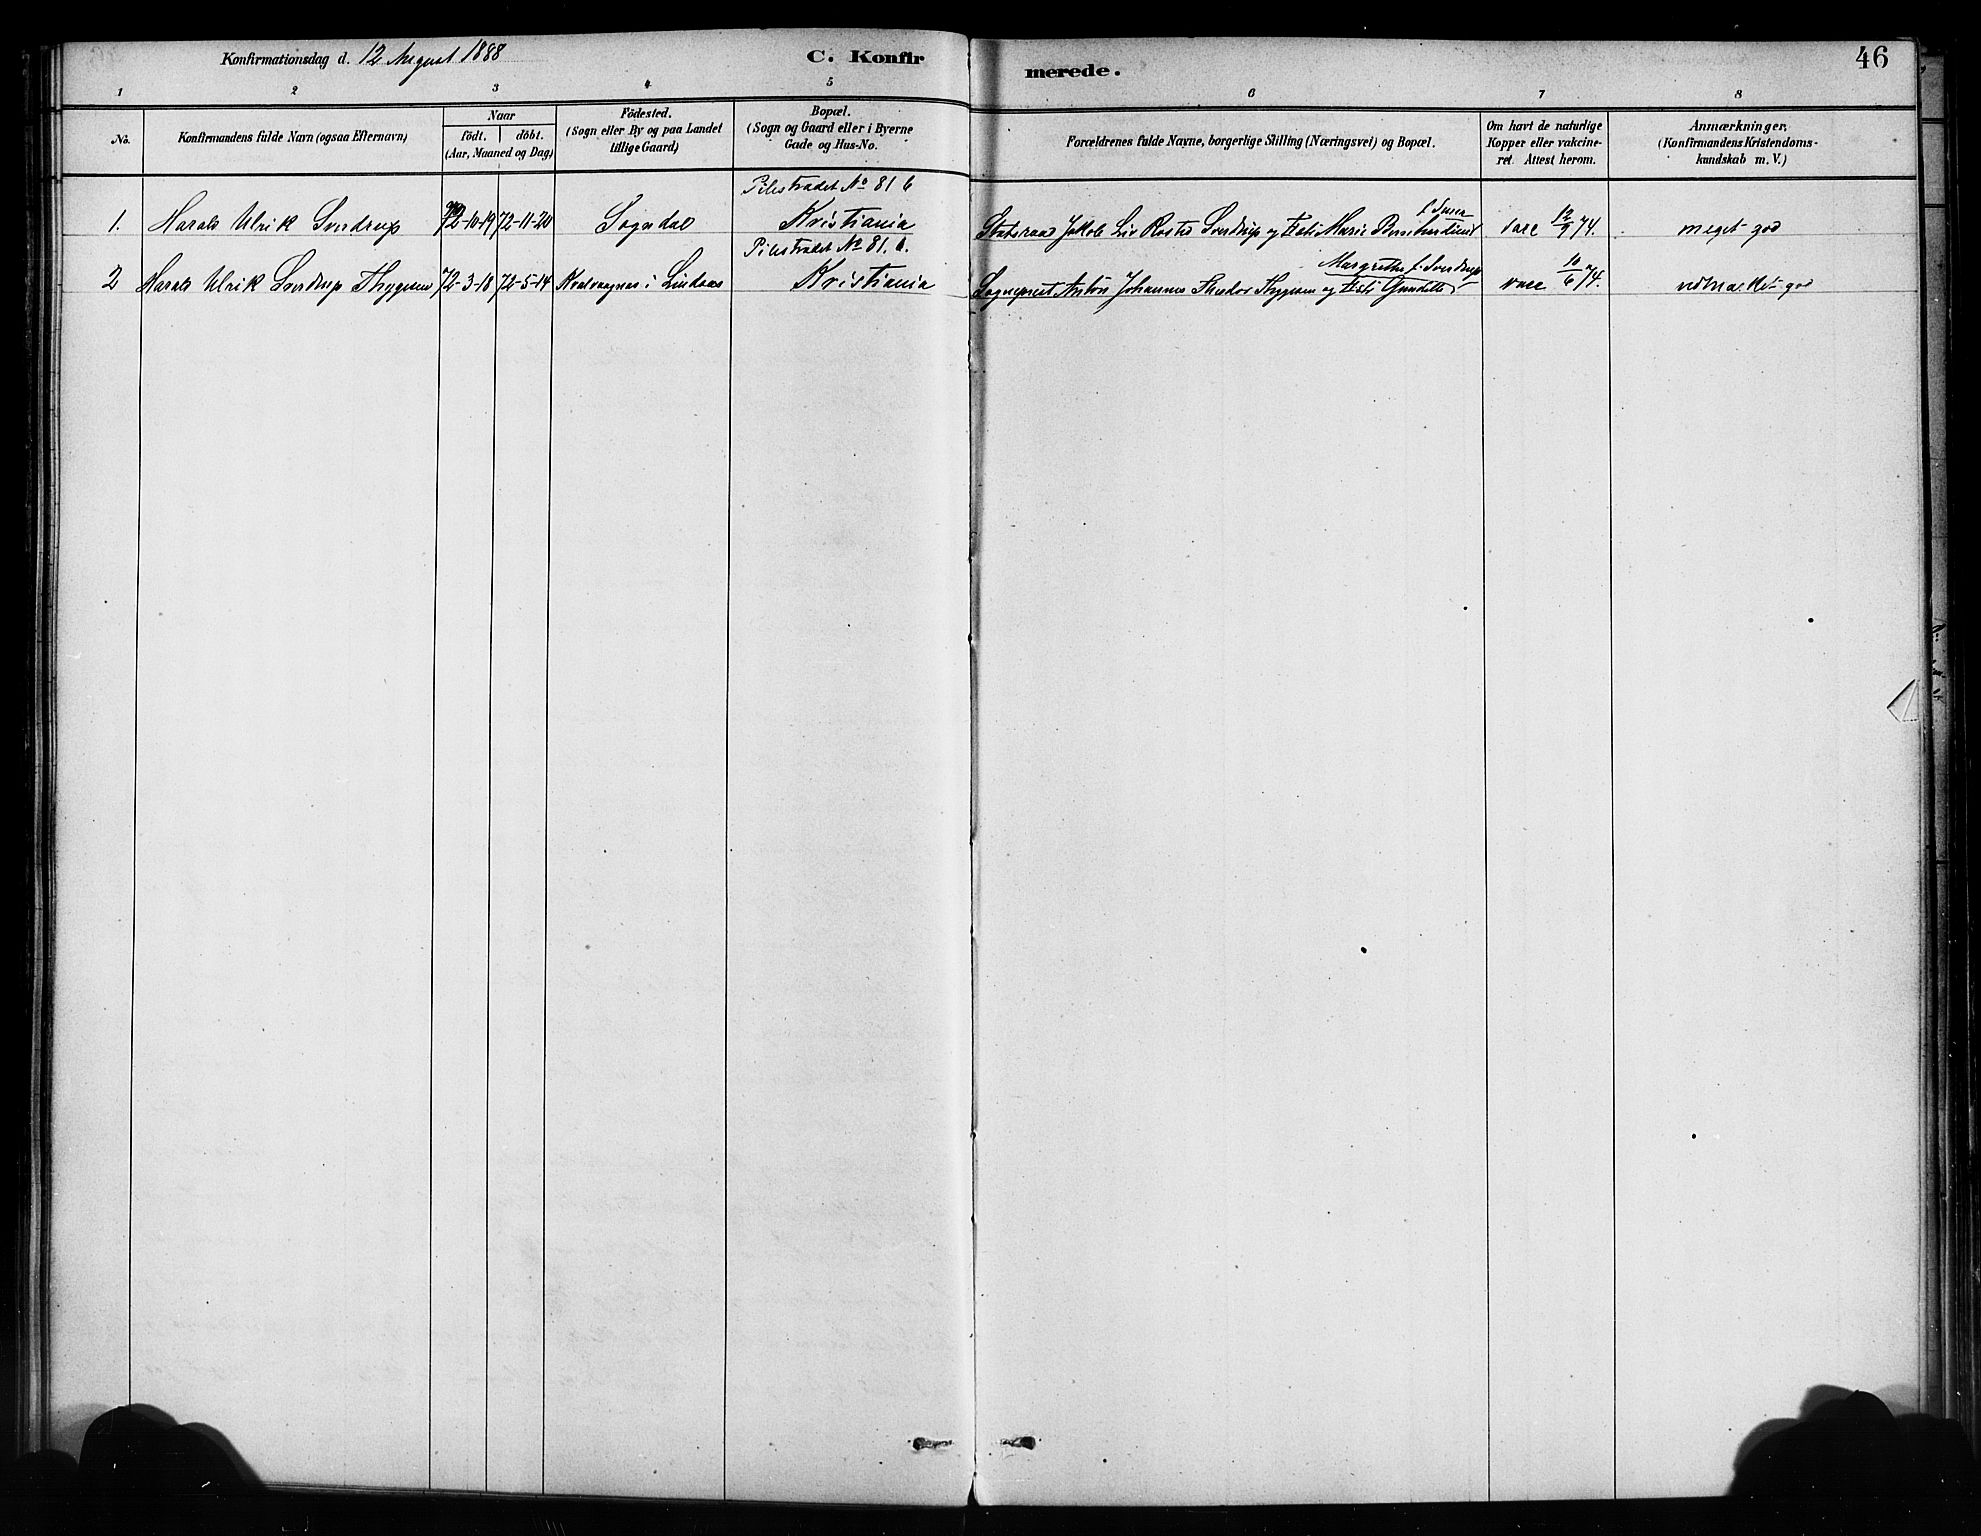 Konfirmationsdag d. 12 August 1888
C. Konfirmerede.
46
1 2 3 4 5 6 7 8
No.
Konfirmandens fulde Navn (ogsaa Efternavn)
Naar
født. døbt.
(Aar, Maaned og Dag)
Födested.
(Sogn eller By og paa Landet
tillige Gaard)
Bopæl.
(Sogn og Gaard eller i Byerne
Gade og Hus-No.
Forældrenes fulde Navne, borgerlige Stilling (Næringsvei) og Bopæl.
Om havt de naturlige
Kopper eller vakcine-
ret. Attest herom.
Anmærkninger.
(Konfirmandens Kristendoms-
kundskab m. V.)
Pilestrædet No 81 b
1. Harald Ulrik Sverdrup 72-10-19 72-11-20 Sogndal Kristiania Statsraad Jakob Liv Rosted Sverdrup og Hstr Marie vacc 12/9 74. meget god
Pilestrædet No 81.b.
Margrethe f. Sverdrup
2 Harald Ulrik Sverdrup Thygesen 72-3-18 72-5-14 i Lindaas Kristiania Sogneprest Anton Johannes Theodor Thygesen og Hstr vacc 10/6 74. udmærket god